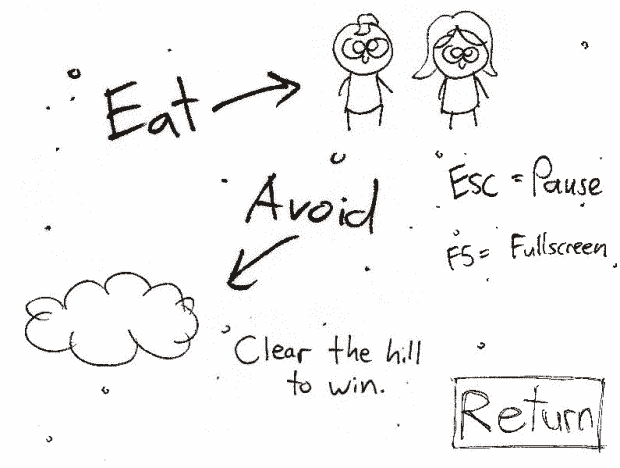 Eat
Avoid
Esc = Pause
F5 = Fullscreen
Clear the hill
to win.
Return